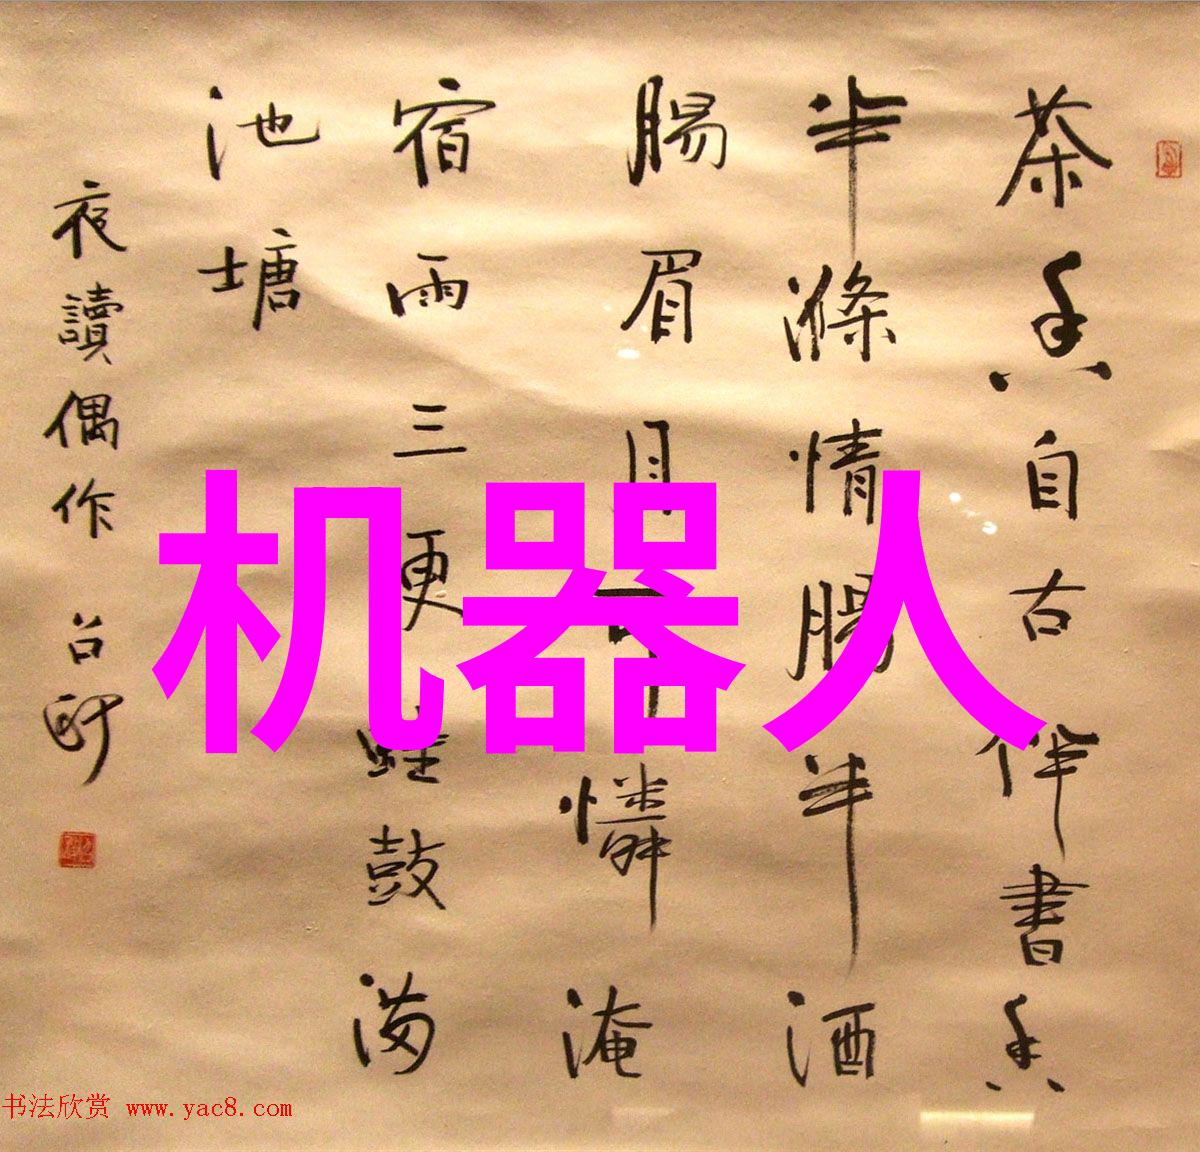 茶香自古伴書香
半滌情腸半酒
腸眉月可憐淹
宿雨三更蛙鼓满
池塘
夜讀偶作
机器人
书法欣赏 www.yac8.com